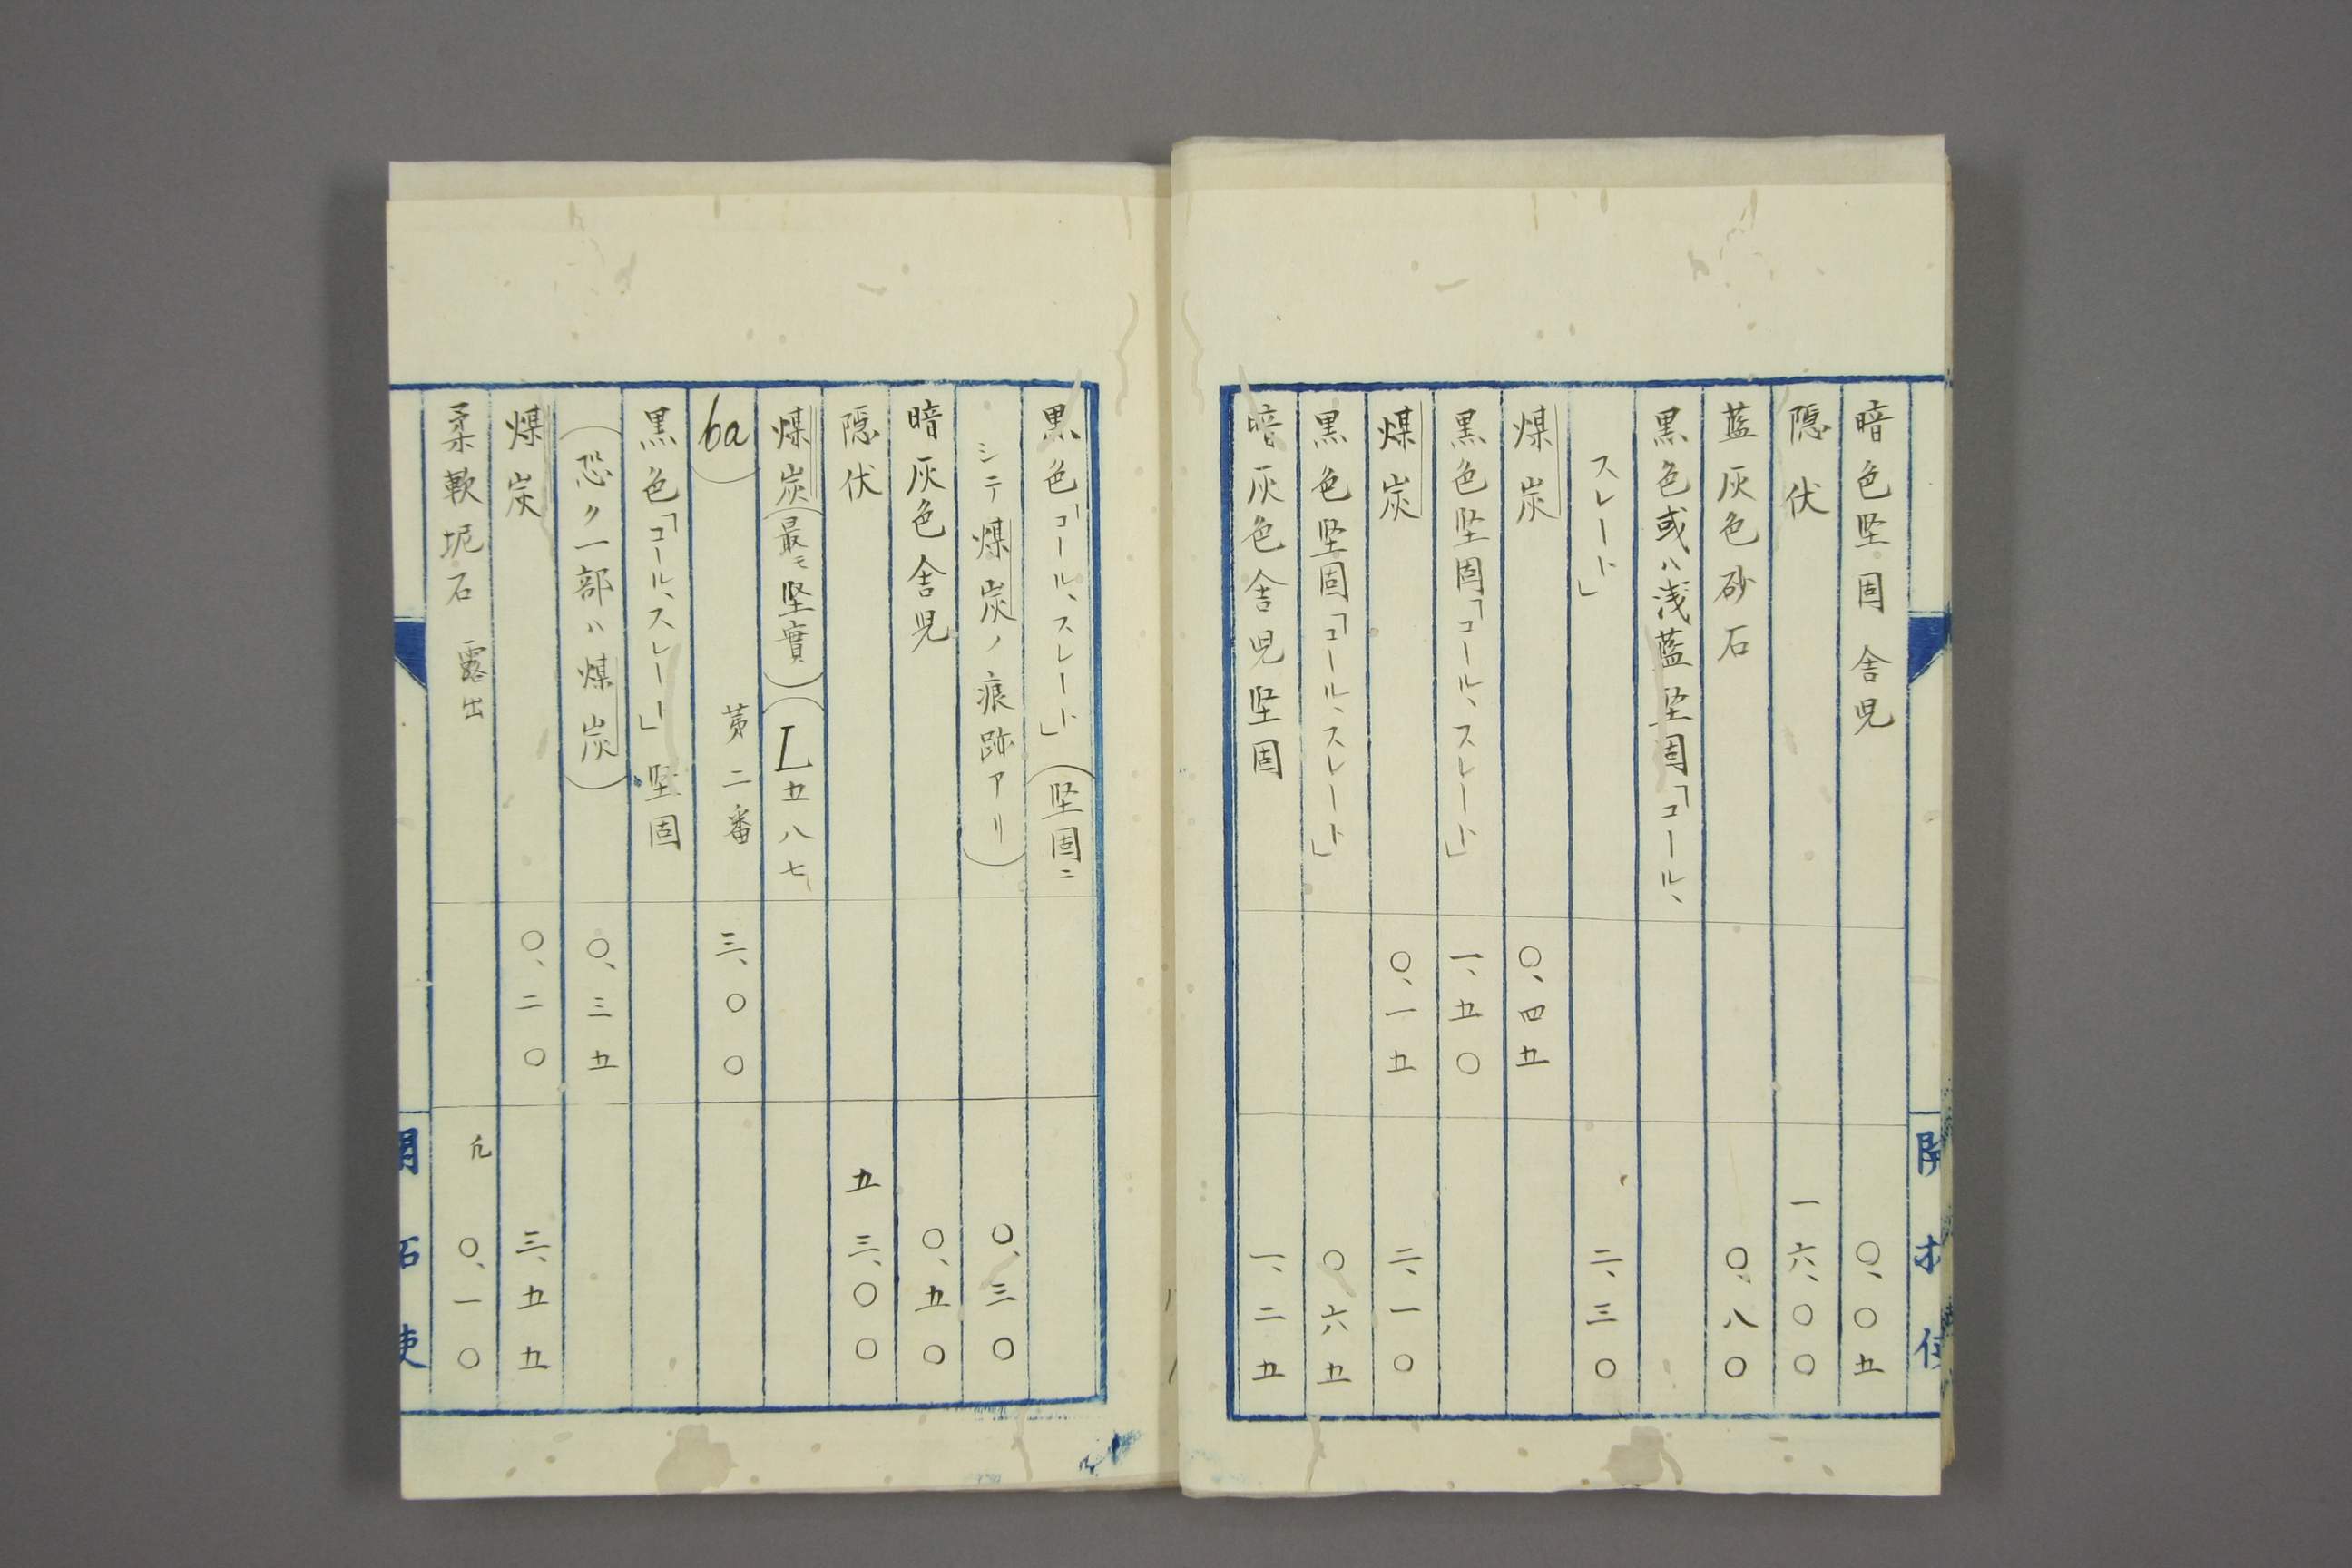 暗色堅固 舎児 〇、〇五
隠伏 一六、〇〇
藍灰色砂石 〇、八〇
黒色或ハ浅藍堅固「コール、
スレート」 二、三〇
煤炭 〇、四五
黒色堅固「コール、スレート」 一、五〇
煤炭 〇、一五 二、一〇
黒色堅固「コール、スレート」 〇六五
暗灰色舎児堅固 一、二五
開拓使
黒色「コール、スレート」(堅固ニ
シテ煤炭ノ痕跡アリ) 〇、三〇
暗灰色舎児 〇、五〇
隠伏 五三、〇〇
煤炭(最モ堅實)(L五八七
6a) 第二番 三、〇〇
黒色「コール、スレート」堅固
(恐ク一部ハ煤炭) 〇、三五
煤炭 〇、二〇 三、五五
柔軟坭石 露出 凢 〇、一〇
開拓使